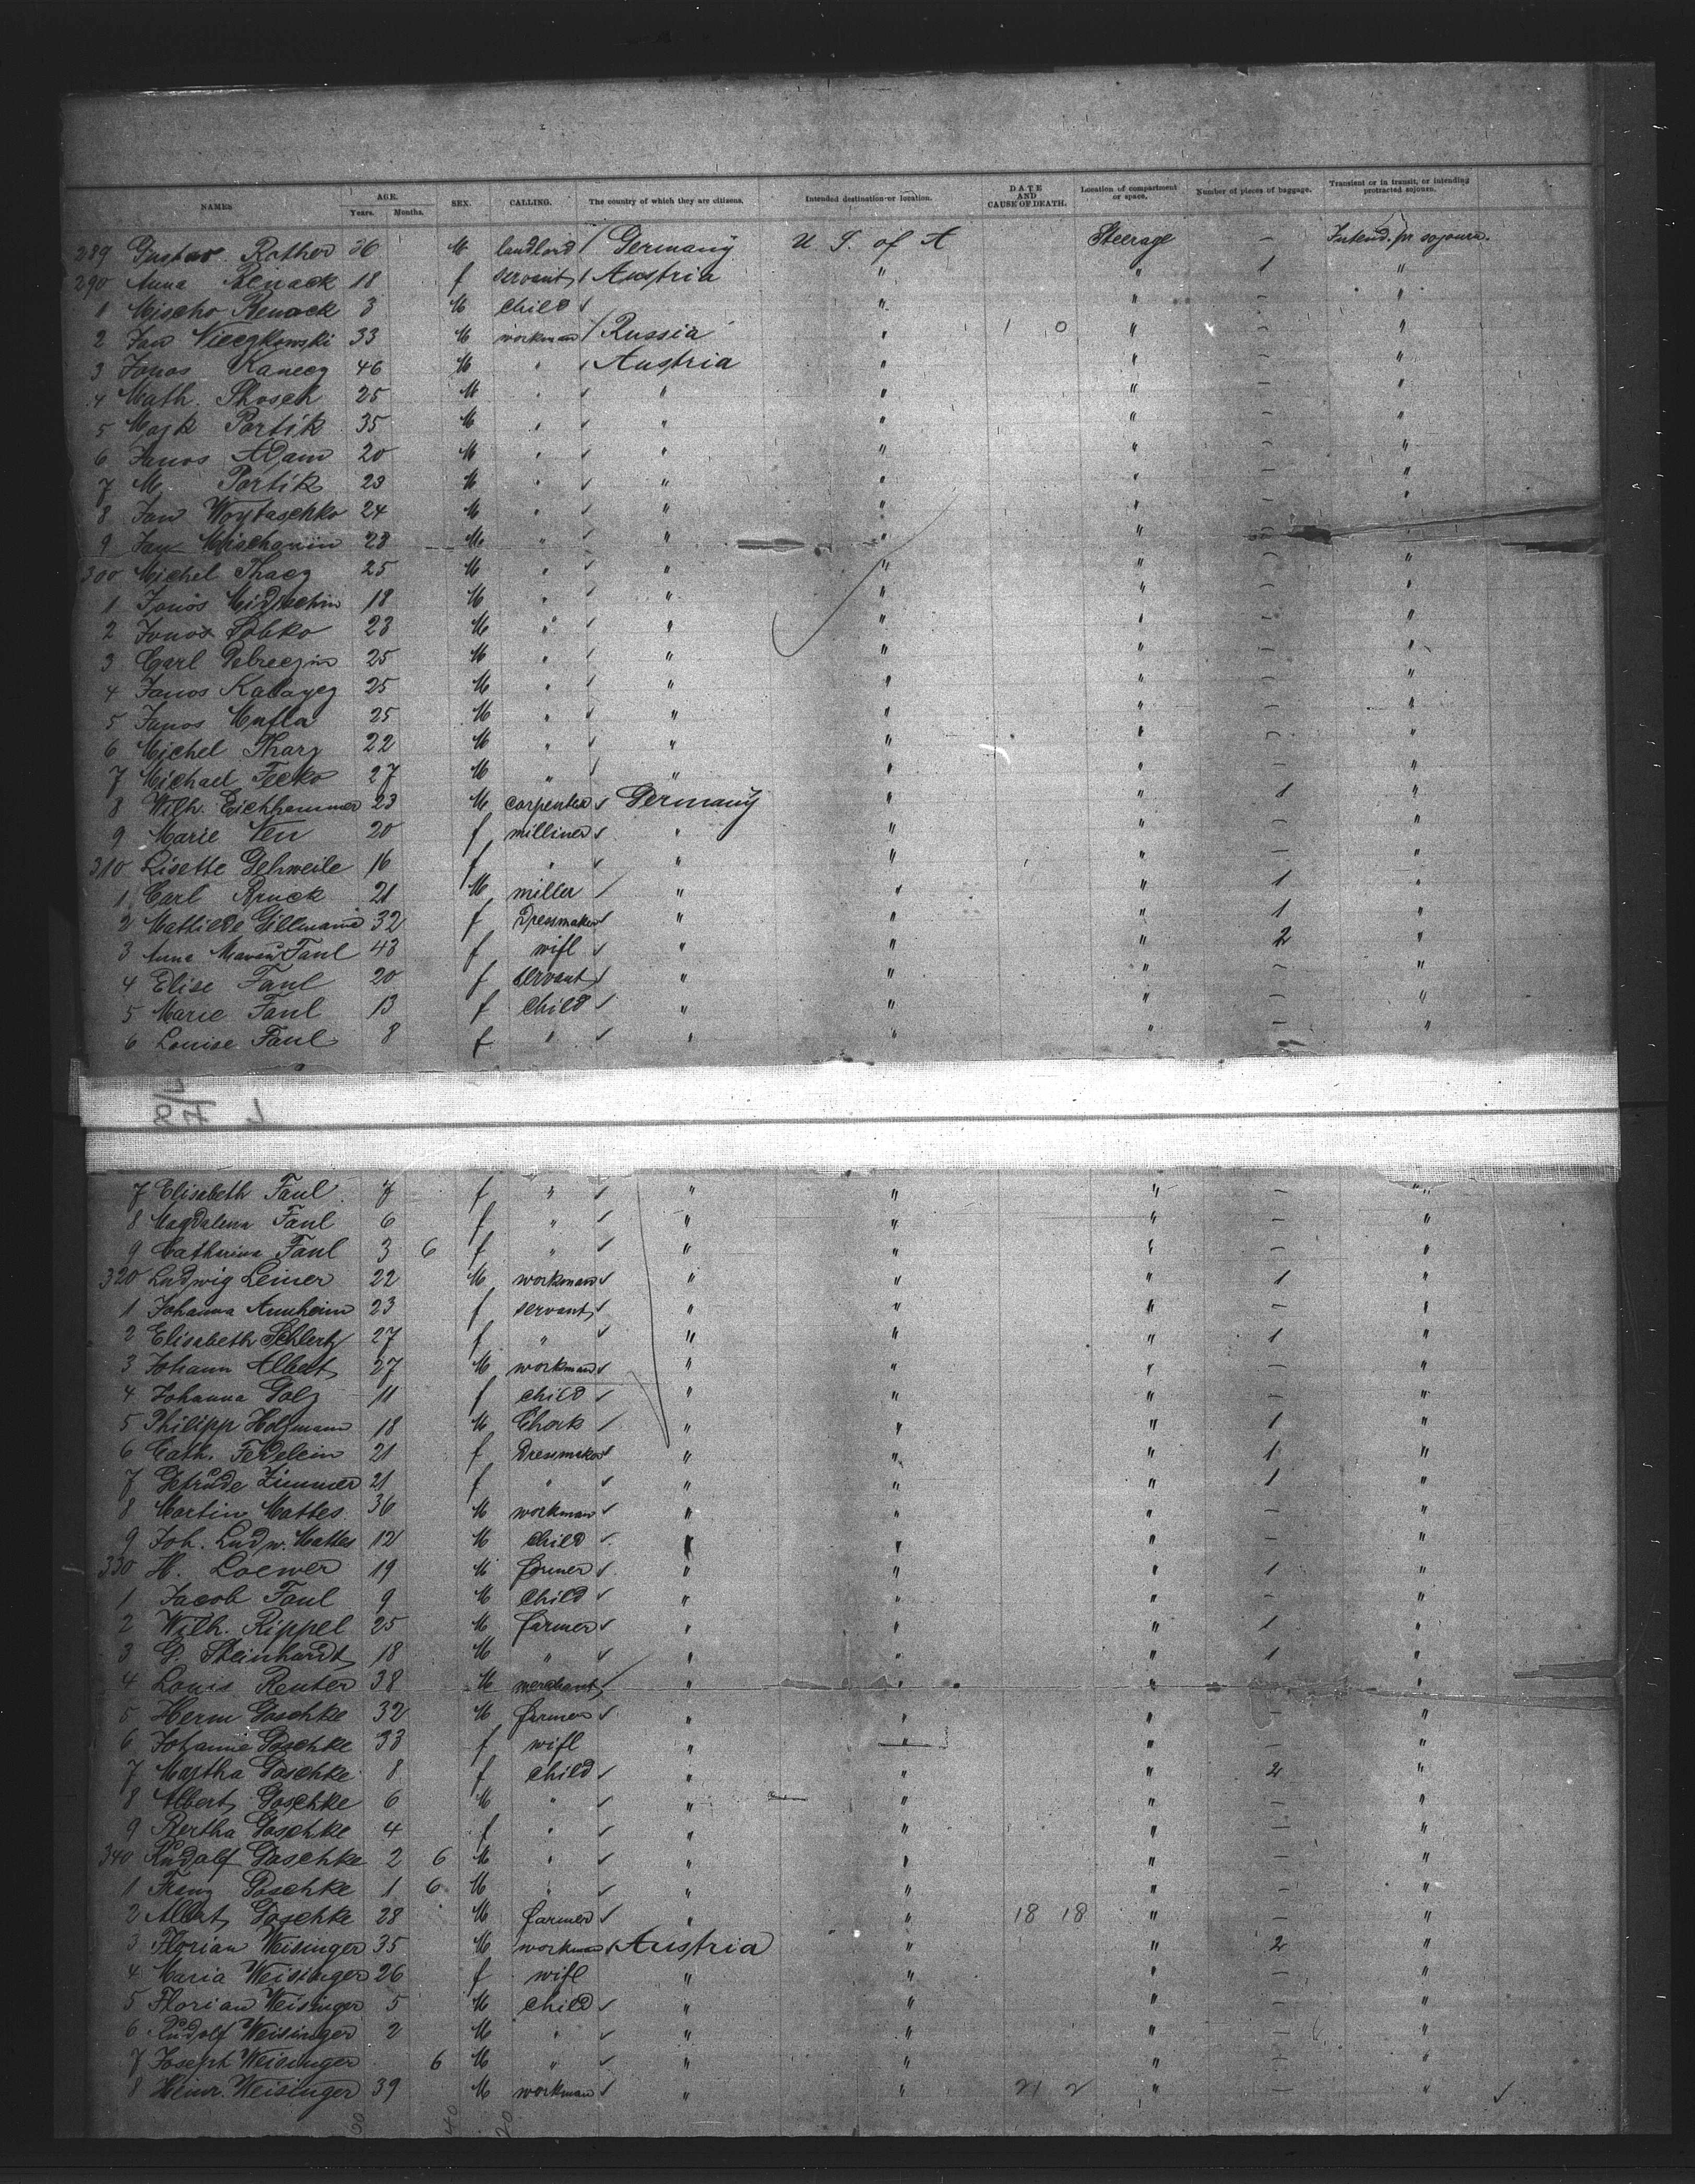 NAMES AGE. Years. Months. SEX. CALLING. The country of which they are citizens. Intended destination or location. DATE AND CAUSE OF DEATH. Location of compartment or space. Number of pieces of baggage. Transient or in transit, or intending protracted sojourn.
289 Gustav Rother 36 M landlord / Germany U. S. of A Steerage – Intend. pr sojourn.
290 Anna 18 f servant / Austria " " 1 "
1 Mischo 3 M child ✓ " " – "
2 Jan 33 M workman / Russia " 1 0 " – "
3 Janos 46 M " ✓ Austria " " – "
4 Math. 25 M " ✓ " " " – "
5 Portik 35 M " ✓ " " " – "
6 Janos Adam 20 M " ✓ " " " – "
7 M. Portik 23 M " ✓ " " " – "
8 Jan Woytaschko 24 M " ✓ " " " – "
9 Jan 23 M " ✓ " " " – "
300 Michel 25 M " ✓ " " " – "
1 Janos 18 M " ✓ " " " – "
2 Janos 23 M " ✓ " " " – "
3 Carl 25 M " ✓ " " " – "
4 Janos 25 M " ✓ " " " – "
5 Janos 25 M " ✓ " " " – "
6 Michel 22 M " ✓ " " " – "
7 Michael Fecko 27 M " ✓ " " " – "
8 Wilh. Eichhammer 23 M carpenter ✓ Germany " " 1 "
9 Marie 20 f milliner ✓ " " " – "
310 Lisette Gehweile 16 f " ✓ " " " – "
1 Carl Bruck 21 M miller / " " " 1 "
2 Mathilde Gillmann 32 f Dressmaker ✓ " " " 1 "
3 Anna Maria Faul 43 f wife ✓ " " " 2 "
4 Elise Faul 20 f servant ✓ " " " – "
5 Marie Faul 13 f child ✓ " " " – "
6 Louise Faul 8 f " ✓ " " " – "
7 Elisabeth Faul 7 f " ✓ " " " – "
8 Magdalena Faul 6 f " ✓ " " " – "
9 Catharina Faul 3 6 f " ✓ " " " – "
320 Ludwig Leiner 22 M workman ✓ " " " 1 "
1 Johanna Arnheim 23 f servant ✓ " " " – "
2 Elisabeth 27 f " ✓ " " " 1 "
3 Johann Albert 27 M workman ✓ " " " – "
4 Johanna Golz 11 f child ✓ " " " – "
5 Philipp Holzmann 18 M ✓ " " " 1 "
6 Cath. Fedelein 21 f Dressmaker ✓ " " " 1 "
7 Getrude Zimmer 21 f " ✓ " " " 1 "
8 Martin Mattes 36 M workman ✓ " " " – "
9 Joh. Ludw. Mattes 12 M child ✓ " " " – "
330 H. Loewer 19 M farmer ✓ " " " 1 "
1 Jacob Faul 9 M child ✓ " " " – "
2 Wilh. Rippel 25 M farmer ✓ " " " 1 "
3 G. Steinhardt 18 M " ✓ " " " 1 "
4 Louis Reuter 38 M merchant ✓ " " " – "
5 Herm Goschke 32 M farmer ✓ " " " – "
6 Johanne Goschke 33 f wife " " " – "
7 Martha Goschke 8 f child ✓ " " " 2 "
8 Albert Goschke 6 M " ✓ " " " – "
9 Bertha Goschke 4 f " ✓ " " " – "
340 Rudolf Goschke 2 6 M " ✓ " " " – "
1 Franz Goschke 1 6 M " ✓ " " " – "
2 Albert Goschke 28 M farmer ✓ " " 18 18 " – "
3 Florian Weisinger 35 M workman ✓ Austria " " 2 "
4 Maria Weisinger 26 f wife " " " – "
5 Florian Weisinger 5 M child ✓ " " " – "
6 Rudolf Weisinger 2 M " ✓ " " " – "
7 Joseph Weisinger 6 M " ✓ " " " – "
8 Heinr. Weisinger 39 M workman ✓ " " 21 2 " – "